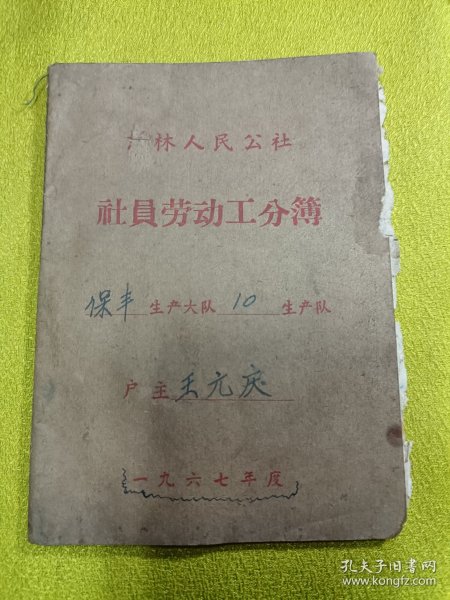 林人民公社
社員劳动工分簿
保丰生产大队10生产队
户主王元庆
一九六七年度
孔夫子旧书网
www.kongfz.com